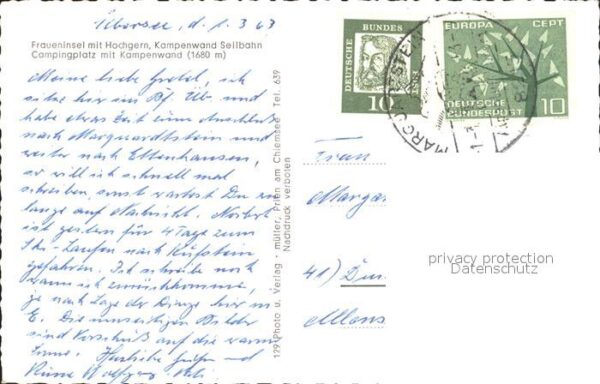 Übersee, d. 1. 3. 63
Fraueninsel mit Hochgern, Kampenwand Seilbahn
Campingplatz mit Kampenwand (1680 m)
Meine liebe Gretel, ich
sitze hier im Bf. Üb. und
habe etwas Zeit zum Anschluß
nach Marquartstein und
weiter nach Ettenhausen,
so will ich schnell mal
schreiben, sonst wartest Du zu
lange auf Nachricht. Norbert
ist gestern für 4 Tage zum
Ski-Laufen nach Kufstein
gefahren. Ich schreibe noch
wann ich zurückkomme,
je nach Lage der Dinge hier in
E. Die umseitigen Bilder
sind Vorschuß auf die warme
Sonne. Herzliche Grüße
Deine Wolfgang
129 Photo u. Verlag - müller, Prien am Chiemsee Tel. 639
Nachdruck verboten
DEUTSCHE BUNDESPOST
10
EUROPA CEPT
DEUTSCHE
BUNDESPOST 10
Frau
Margar
41) Dui
privacy protection
Datenschutz